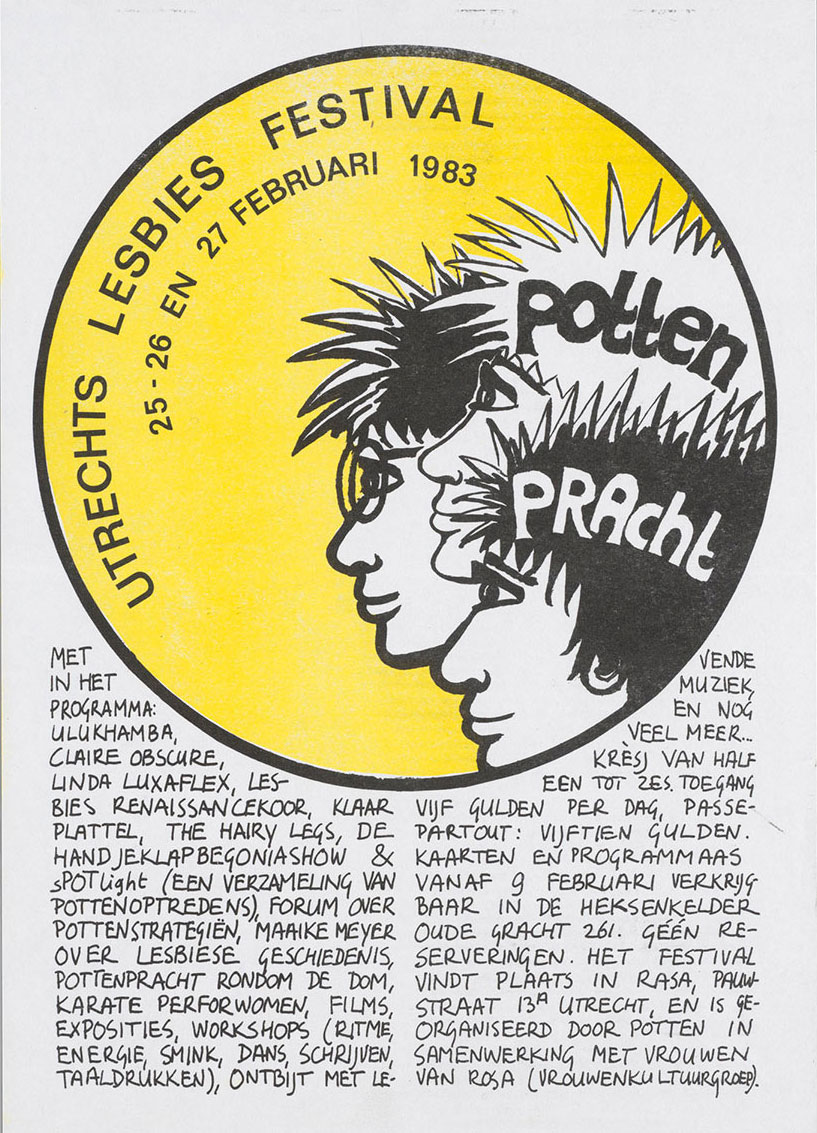 UTRECHTS LESBIES FESTIVAL
25-26 EN 27 FEBRUARI 1983
potten
PRAcht
MET
IN HET
PROGRAMMA:
ULUKHAMBA,
CLAIRE OBSCURE,
LINDA LUXAFLEX, LES-
BIES RENAISSANCEKOOR, KLAAR
PLATTEL, THE HAIRY LEGS, DE
HANDJEKLAPBEGONIASHOW &
sPOTlight (EEN VERZAMELING VAN
POTTENOPTREDENS), FORUM OVER
POTTENSTRATEGIËN, MAAIKE MEYER
OVER LESBIESE GESCHIEDENIS,
POTTENPRACHT RONDOM DE DOM,
KARATE PERFORWOMEN, FILMS,
EXPOSITIES, WORKSHOPS (RITME,
ENERGIE, SMINK, DANS, SCHRIJVEN,
TAALDRUKKEN), ONTBIJT MET LE-
VENDE
MUZIEK,
EN NOG
VEEL MEER...
KRÈSJ VAN HALF
EEN TOT ZES. TOEGANG
VIJF GULDEN PER DAG, PASSE-
PARTOUT: VIJFTIEN GULDEN.
KAARTEN EN PROGRAMMAAS
VANAF 9 FEBRUARI VERKRIJG
BAAR IN DE HEKSENKELDER
OUDE GRACHT 261. GÉÉN RE-
SERVERINGEN. HET FESTIVAL
VINDT PLAATS IN RASA, PAUW-
STRAAT 13A UTRECHT, EN IS GE-
ORGANISEERD DOOR POTTEN IN
SAMENWERKING MET VROUWEN
VAN ROSA (VROUWENKULTUURGROEP).